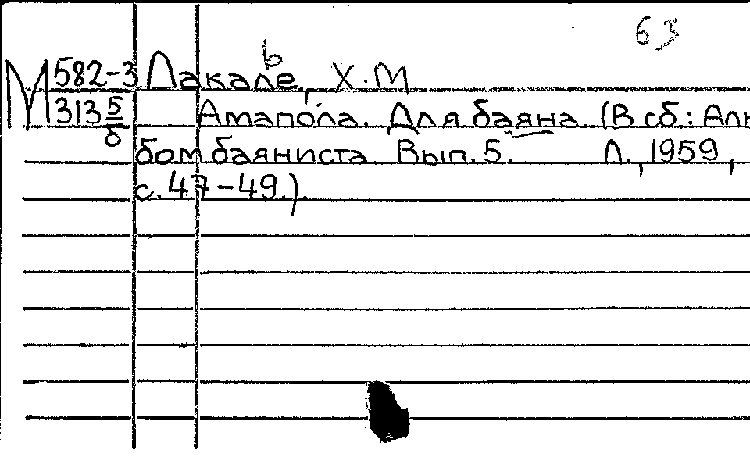 63
М 582-3 Лакале, Х.М
313 5/б Амапо́ла. Для баяна. (В сб.: Аль
бом баяниста. Вып. 5. Л., 1959,
с. 47-49.).